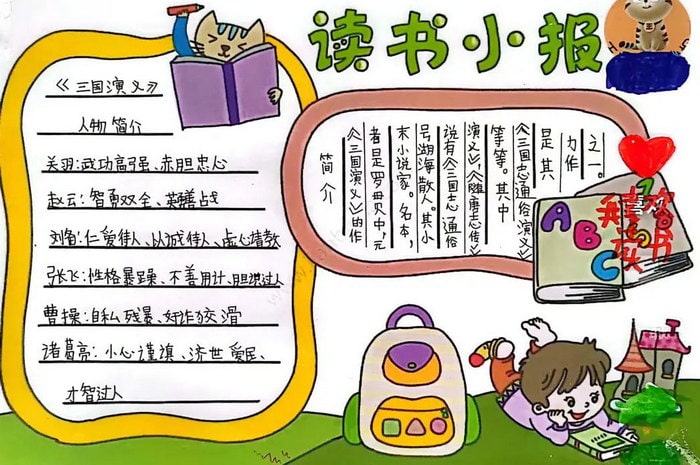 读书小报
《三国演义》
人物简介
关羽:武功高强、赤胆忠心
赵云:智勇双全、善战
刘备:仁爱待人、以诚待人、虚心请教
张飞:性格暴躁、不善用计、胆识过人
曹操:自私残暴、奸诈狡滑
诸葛亮:小心谨慎、济世爱民、
才智过人
简介
《三国演义》的作
者是罗贯中,元
末小说家。名本,
号湖海散人。其小
说有《三国志通俗
演义》,《隋唐志传》
等等。其中
《三国志通俗演义》
是其
力作
之一。
ABC
我喜欢
读书